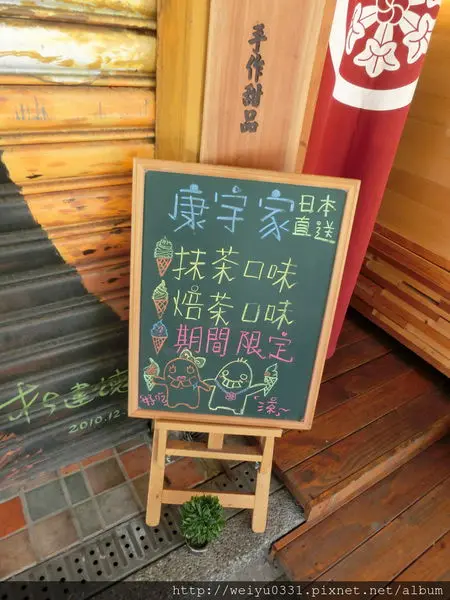 手作甜品
康宇家
日本
直送
抹茶口味
焙茶口味
期間限定
好吃
"滾~
2010.12
http://weiyu0331.pixnet.net/album